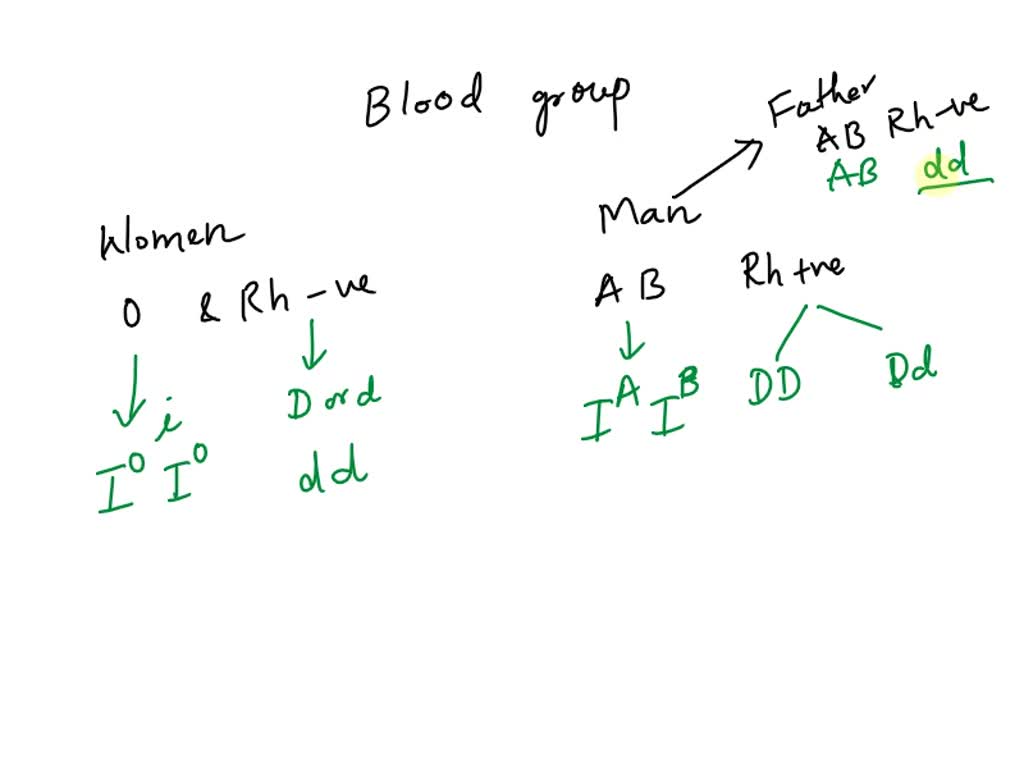 Blood group
Father
AB Rh-ve
AB dd
Women
Man
O & Rh -ve
AB Rh +ve
D or d
i
I^O I^O
dd
I^A I^B
DD
Dd